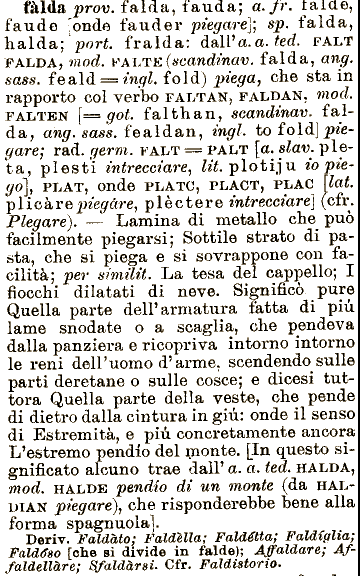 fàlda prov. falda, fauda; a. fr. falde,
faude [onde fauder piegare]; sp. falda,
halda; port. fralda: dall'a. a. ted. FALT
FALDA, mod. FALTE (scandinav. falda, ang.
sass. feald = ingl. fold) piega, che sta in
rapporto col verbo FALTAN, FALDAN, mod.
FALTEN [= got. falthan, scandinav. fal-
da, ang. sass. fealdan, ingl. to fold] pie-
gare; rad. germ. FALT = PALT [a. slav. ple-
ta, plesti intrecciare, lit. plotiju io pie-
go], PLAT, onde PLATC, PLACT, PLAC [lat.
plicàre piegàre, plèctere intrecciare] (cfr.
Plegare). — Lamina di metallo che può
facilmente piegarsi; Sottile strato di pa-
sta, che si piega e si sovrappone con fa-
cilità; per similit. La tesa del cappello; I
fiocchi dilatati di neve. Significò pure
Quella parte dell'armatura fatta di piú
lame snodate o a scaglia, che pendeva
dalla panziera e ricopriva intorno intorno
le reni dell'uomo d'arme, scendendo sulle
parti deretane o sulle cosce; e dicesi tut-
tora Quella parte della veste, che pende
di dietro dalla cintura in giú: onde il senso
di Estremità, e piú concretamente ancora
L'estremo pendío del monte. [In questo si-
gnificato alcuno trae dall' a. a. ted. HALDA,
mod. HALDE pendío di un monte (da HAL-
DIAN piegare), che risponderebbe bene alla
forma spagnuola].
Deriv. Faldàto; Faldèlla; Faldétta; Faldíglia;
Faldóso [che si divide in falde); Affaldare; Af-
faldellàre; Sfaldàrsi. Cfr. Faldistorio.